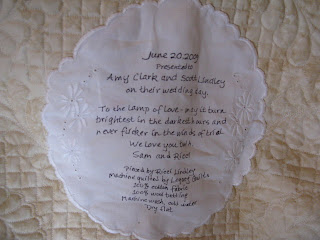 June 20, 2009
Presented to
Amy Clark and Scott Lindley
on their wedding day.
To the lamp of love - may it burn
brightest in the darkest hours and
never flicker in the winds of trial.
We love you both,
Sam and Ricel
Pieced by Ricel Lindley
Machine quilted by Legacy Quilts
100% cotton fabric
100% wool batting
Machine wash, cold water
Dry flat